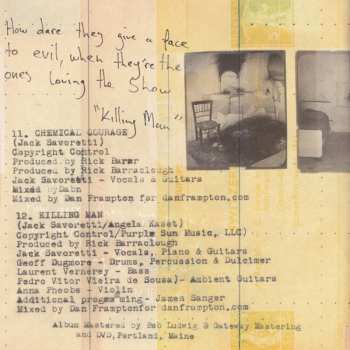 How dare they give a face
to evil, when they're the
ones loving the show
"Killing Man"
11. CHEMICAL COURAGE
(Jack Savoretti)
Copyright Control
Produced by Rick Barraclough
Jack Savoretti - Vocals & Guitars
Mixed by
Mixed by Dan Frampton for danframpton.com
12. KILLING MAN
(Jack Savoretti/Angela Kaset)
Copyright Control/Purple Sun Music, LLC)
Produced by Rick Barraclough
Jack Savoretti - Vocals, Piano & Guitars
Geoff Dugmore - Drums, Percussion & Dulcimer
Laurent Vernerey - Bass
Pedro Vitor Vieira de Sousa)- Ambient Guitars
Anna Pheobe - Violin
Additional progra ming- James Sanger
Mixed by Dan Framptonfor danframpton.com
Album Mastered by Bob Ludwig @ Gateway Mastering
and DVD, Portland, Maine